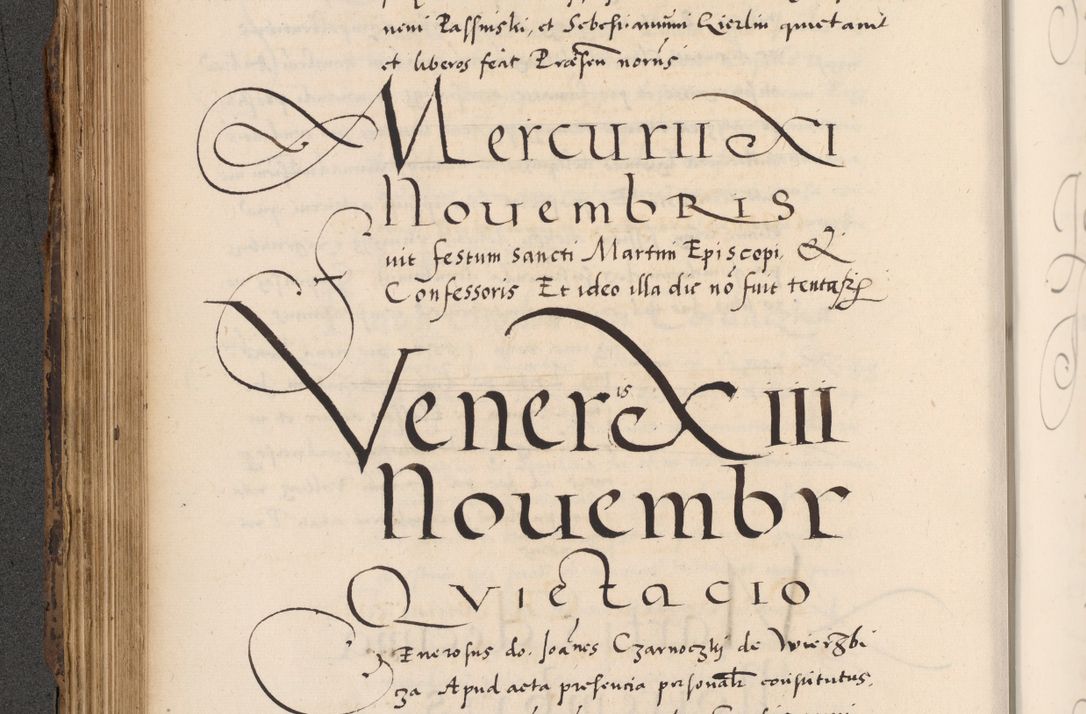 neni Rassinski, et Sebestianum̄ Qierlin quietauit
et liberos fecit Præsen norūs
Mercurii XI
NouembRIS
Fuit festum sancti Martini Episcopi, &
Confessoris Et ideo illa die nō fuit
Veneris XIII
Nouembr
QVIetacio
Generosus do. Joānes Czarnoczkij de Wierzbi
cza Apud acta presencia personalr constitutus.